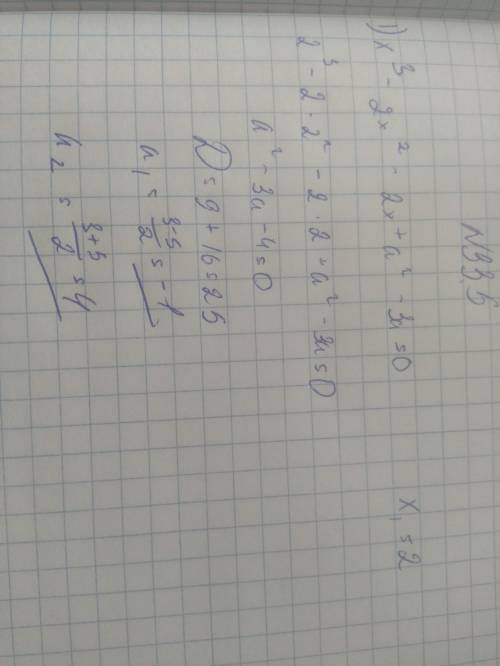 N33,5
1) x³ - 2x² - 2x + a² - 3a = 0 x₁ = 2
2³ - 2·2² - 2·2 + a² - 3a = 0
a² - 3a - 4 = 0
D = 9 + 16 = 25
a₁ = (3-5)/2 = -1
a₂ = (3+5)/2 = 4